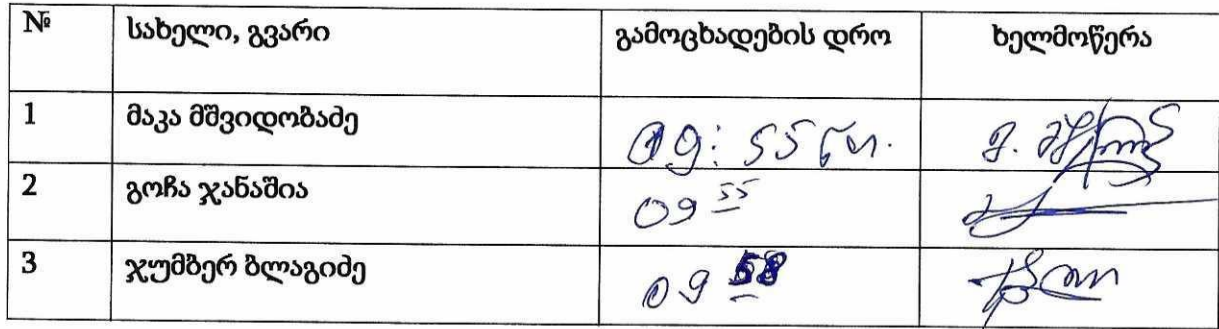 № სახელი, გვარი გამოცხადების დრო ხელმოწერა
1 მაკა მშვიდობაძე 09:55 წთ.
2 გოჩა ჯანაშია 09 55
3 ჯუმბერ ბლაგიძე 09 58